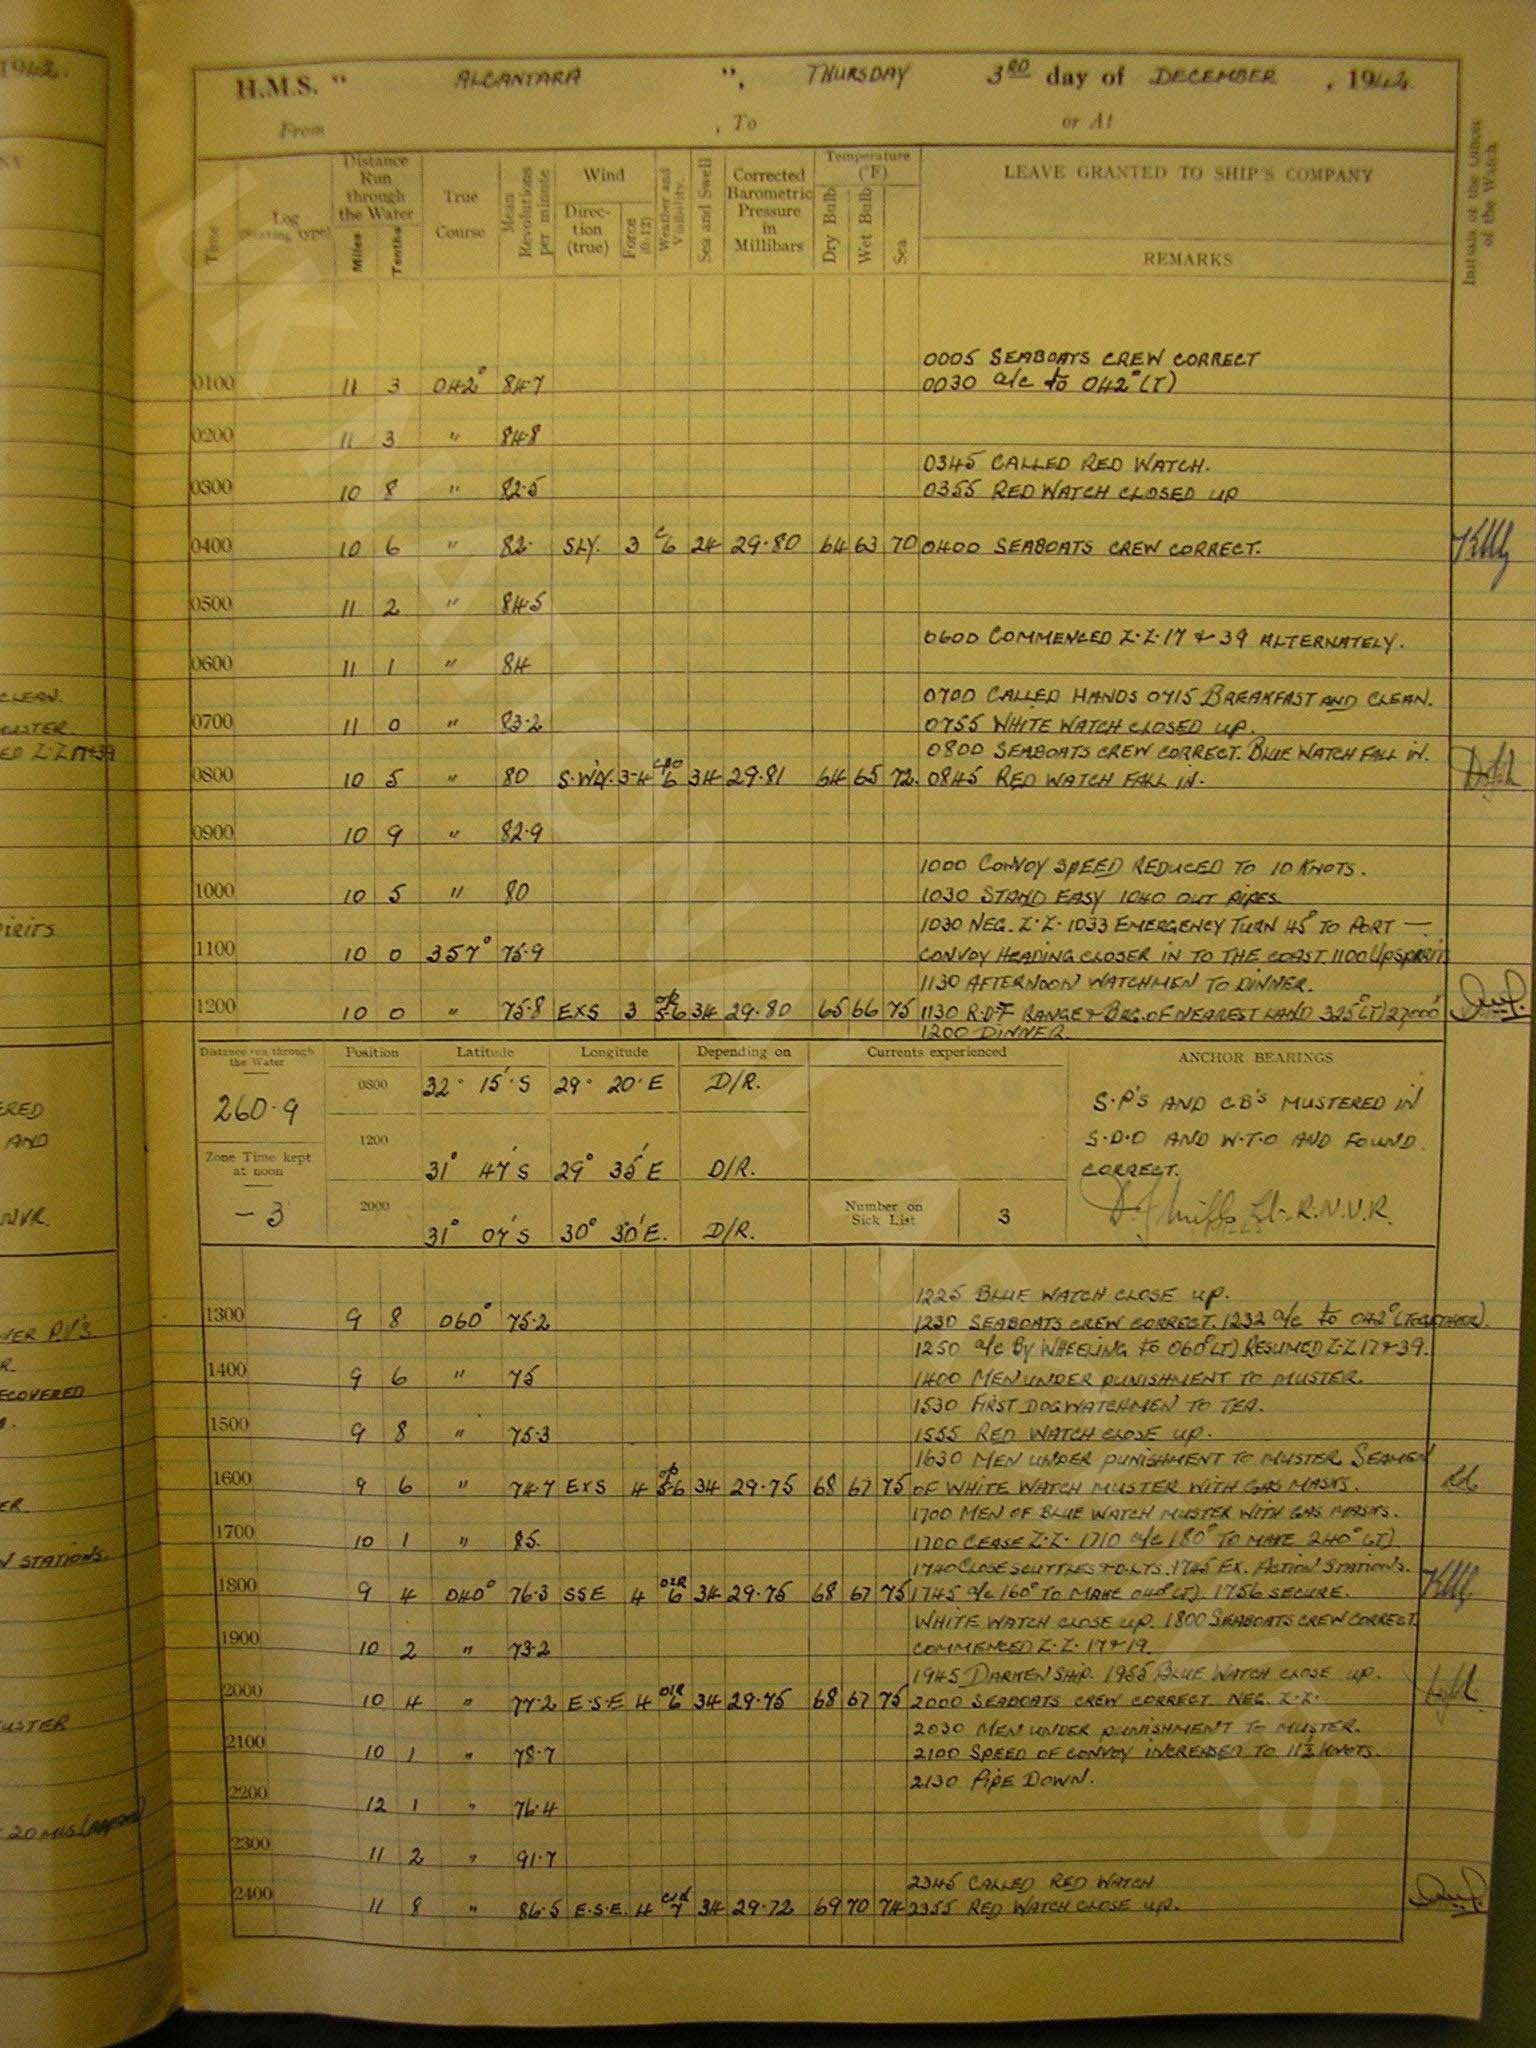 1942.
H.M.S. " ALCANTARA ", THURSDAY 3RD day of DECEMBER , 1942
From , To or At
Time
Log
Distance Run through the Water
Miles Tenths
True Course
Mean Revolutions per minute
Wind
Direction (true) Force (0-12)
Weather and Visibility.
Sea and Swell
Corrected Barometric Pressure in Millibars
Temperature (°F)
Dry Bulb Wet Bulb Sea
LEAVE GRANTED TO SHIP'S COMPANY
REMARKS
Initials of the Officer of the Watch
0005 SEABOATS CREW CORRECT
0100 11 3 042° 84·7 0030 a/c to 042°(T)
0200 11 3 " 84·8
0345 CALLED RED WATCH.
0300 10 8 " 82·5 0355 RED WATCH CLOSED UP
0400 10 6 " 82· SLY. 3 c/6 24 29·80 64 63 70 0400 SEABOATS CREW CORRECT.
0500 11 2 " 84·5
0600 COMMENCED Z·Z·17 & 39 ALTERNATELY.
0600 11 1 " 84
0700 CALLED HANDS 0715 BREAKFAST AND CLEAN.
0700 11 0 " 83·2 0755 WHITE WATCH CLOSED UP.
0800 SEABOATS CREW CORRECT. BLUE WATCH FALL IN.
0800 10 5 " 80 S·W'LY. 3-4 6 34 29·81 64 65 72. 0845 RED WATCH FALL IN.
0900 10 9 " 82·9
1000 CONVOY SPEED REDUCED TO 10 KNOTS.
1000 10 5 " 80 1030 STAND EASY 1040 OUT PIPES.
1030 NEG. Z·Z· 1033 EMERGENCY TURN 45° TO PORT —
1100 10 0 357° 75·9 CONVOY HEADING CLOSER IN TO THE COAST. 1100 UP SPIRITS
1130 AFTERNOON WATCHMEN TO DINNER.
1200 10 0 " 75·8 EXS 3 5-6 34 29·80 65 66 75 1130 R·D·F RANGE & BRG. OF NEAREST LAND 325°(T) 27,000'
1200 DINNER.
Distance run through the Water
260·9
Zone Time kept at noon
-3
Position Latitude Longitude Depending on Currents experienced ANCHOR BEARINGS
0800 32° 15'·S 29° 20'E D/R.
1200 31° 47'S 29° 35'E D/R.
2000 31° 07'S 30° 30'E. D/R.
Number on Sick List 3
S·P's AND C B's MUSTERED IN
S·D·O AND W·T·O AND FOUND
CORRECT.
Lt. R.N.V.R.
1225 BLUE WATCH CLOSE UP.
1300 9 8 060° 75·2 1230 SEABOATS CREW CORRECT. 1232 a/c to 042° (TOGETHER).
1250 a/c BY WHEELING to 060°(T) RESUMED Z·Z 17 & 39.
1400 9 6 " 75 1400 MEN UNDER PUNISHMENT TO MUSTER.
1530 FIRST DOG WATCHMEN TO TEA.
1500 9 8 " 75·3 1555 RED WATCH CLOSE UP.
1630 MEN UNDER PUNISHMENT TO MUSTER. SEAMEN
1600 9 6 " 74·7 EXS 4 5-6 34 29·75 68 67 75 OF WHITE WATCH MUSTER WITH GAS MASKS.
1700 MEN OF BLUE WATCH MUSTER WITH GAS MASKS.
1700 10 1 " 85. 1700 CEASE Z·Z. 1710 a/c 180° TO MAKE 240°(T)
1740 CLOSE SCUTTLES & D·LTS. 1745 EX. ACTION STATIONS.
1800 9 4 040° 76·3 SSE 4 6 34 29·75 68 67 75 1745 a/c 160° TO MAKE 040°(T). 1756 SECURE.
WHITE WATCH CLOSE UP. 1800 SEABOATS CREW CORRECT.
1900 10 2 " 73·2 COMMENCED Z·Z· 17 & 19.
1945 DARKEN SHIP. 1955 BLUE WATCH CLOSE UP.
2000 10 4 " 77·2 E·S·E 4 6 34 29·75 68 67 75 2000 SEABOATS CREW CORRECT. NEG. Z·Z·
2030 MEN UNDER PUNISHMENT TO MUSTER.
2100 10 1 " 78·7 2100 SPEED OF CONVOY INCREASED TO 11½ KNOTS.
2130 PIPE DOWN.
2200 12 1 " 76·4
2300 11 2 " 91·7
2345 CALLED RED WATCH
2400 11 8 " 86·5 E·S·E. 4 7 34 29·72 69 70 74 2355 RED WATCH CLOSE UP.
CLEAN.
SPIRITS
AND
RECOVERED
STATIONS.
MUSTER
20 MLS